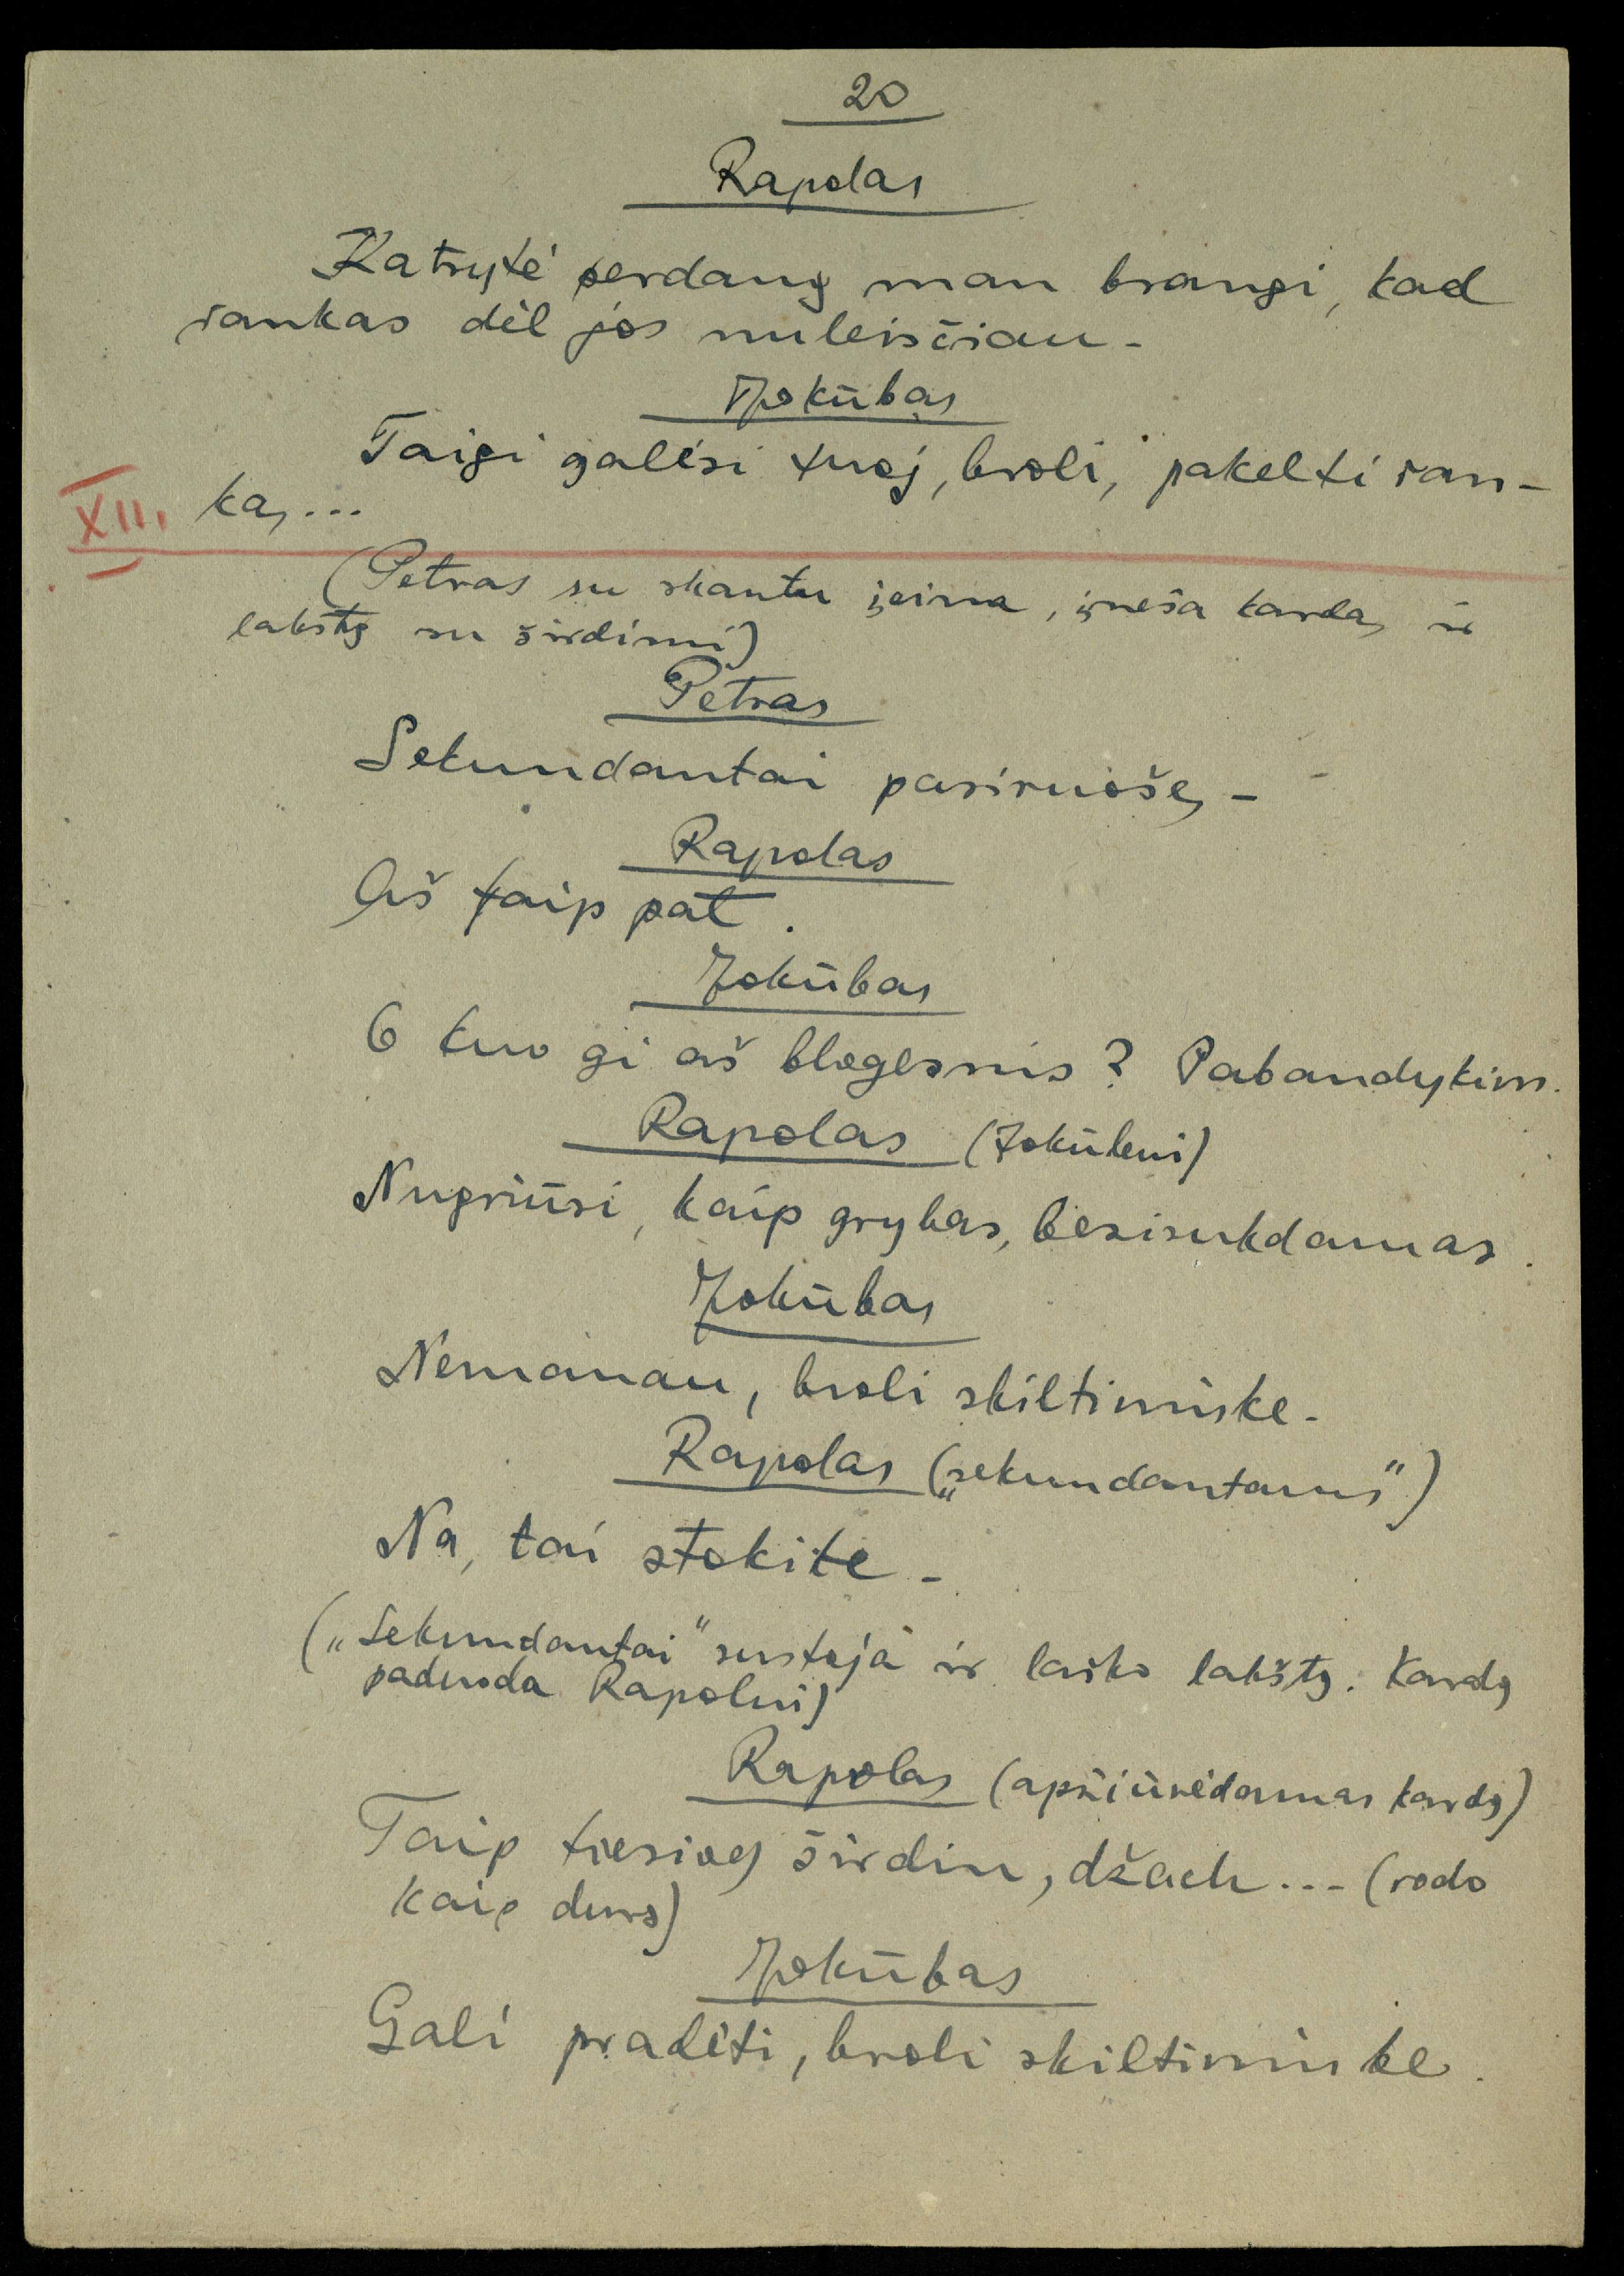 20
Rapolas
Katrytė perdaug man brangi, kad
rankas dėl jos nuleisčiau.
Jokūbas
Taigi galėsi tuoj, broli, pakelti ran-
XII. ką...
(Petras su skautu įeina, įneša kardą ir
lakštą su širdimi)
Petras
Sekundantai pasiruošę.
Rapolas
Aš taip pat.
Jokūbas
O kuo gi aš blogesnis? Pabandykim.
Rapolas (Jokūbui)
Nugriūsi, kaip grybas, besisukdamas.
Jokūbas
Nemanau, broli skiltininke.
Rapolas („sekundantams")
Na, tai stokite.
(„Sekundantai" sustoja ir laiko lakštą. Kardą
paduoda Rapolui)
Rapolas (apžiūrėdamas kardą)
Taip tiesiog širdin, džach... (rodo
kaip durs)
Jokūbas
Gali pradėti, broli skiltininke.